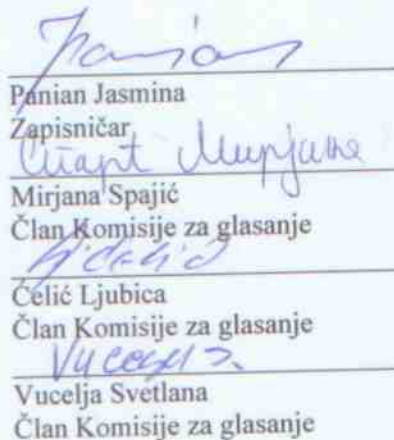 Panian
Panian Jasmina
Zapisničar
Спајић Мирјана
Mirjana Spajić
Član Komisije za glasanje
Ćelić Ljubica
Član Komisije za glasanje
Vucelja S.
Vucelja Svetlana
Član Komisije za glasanje